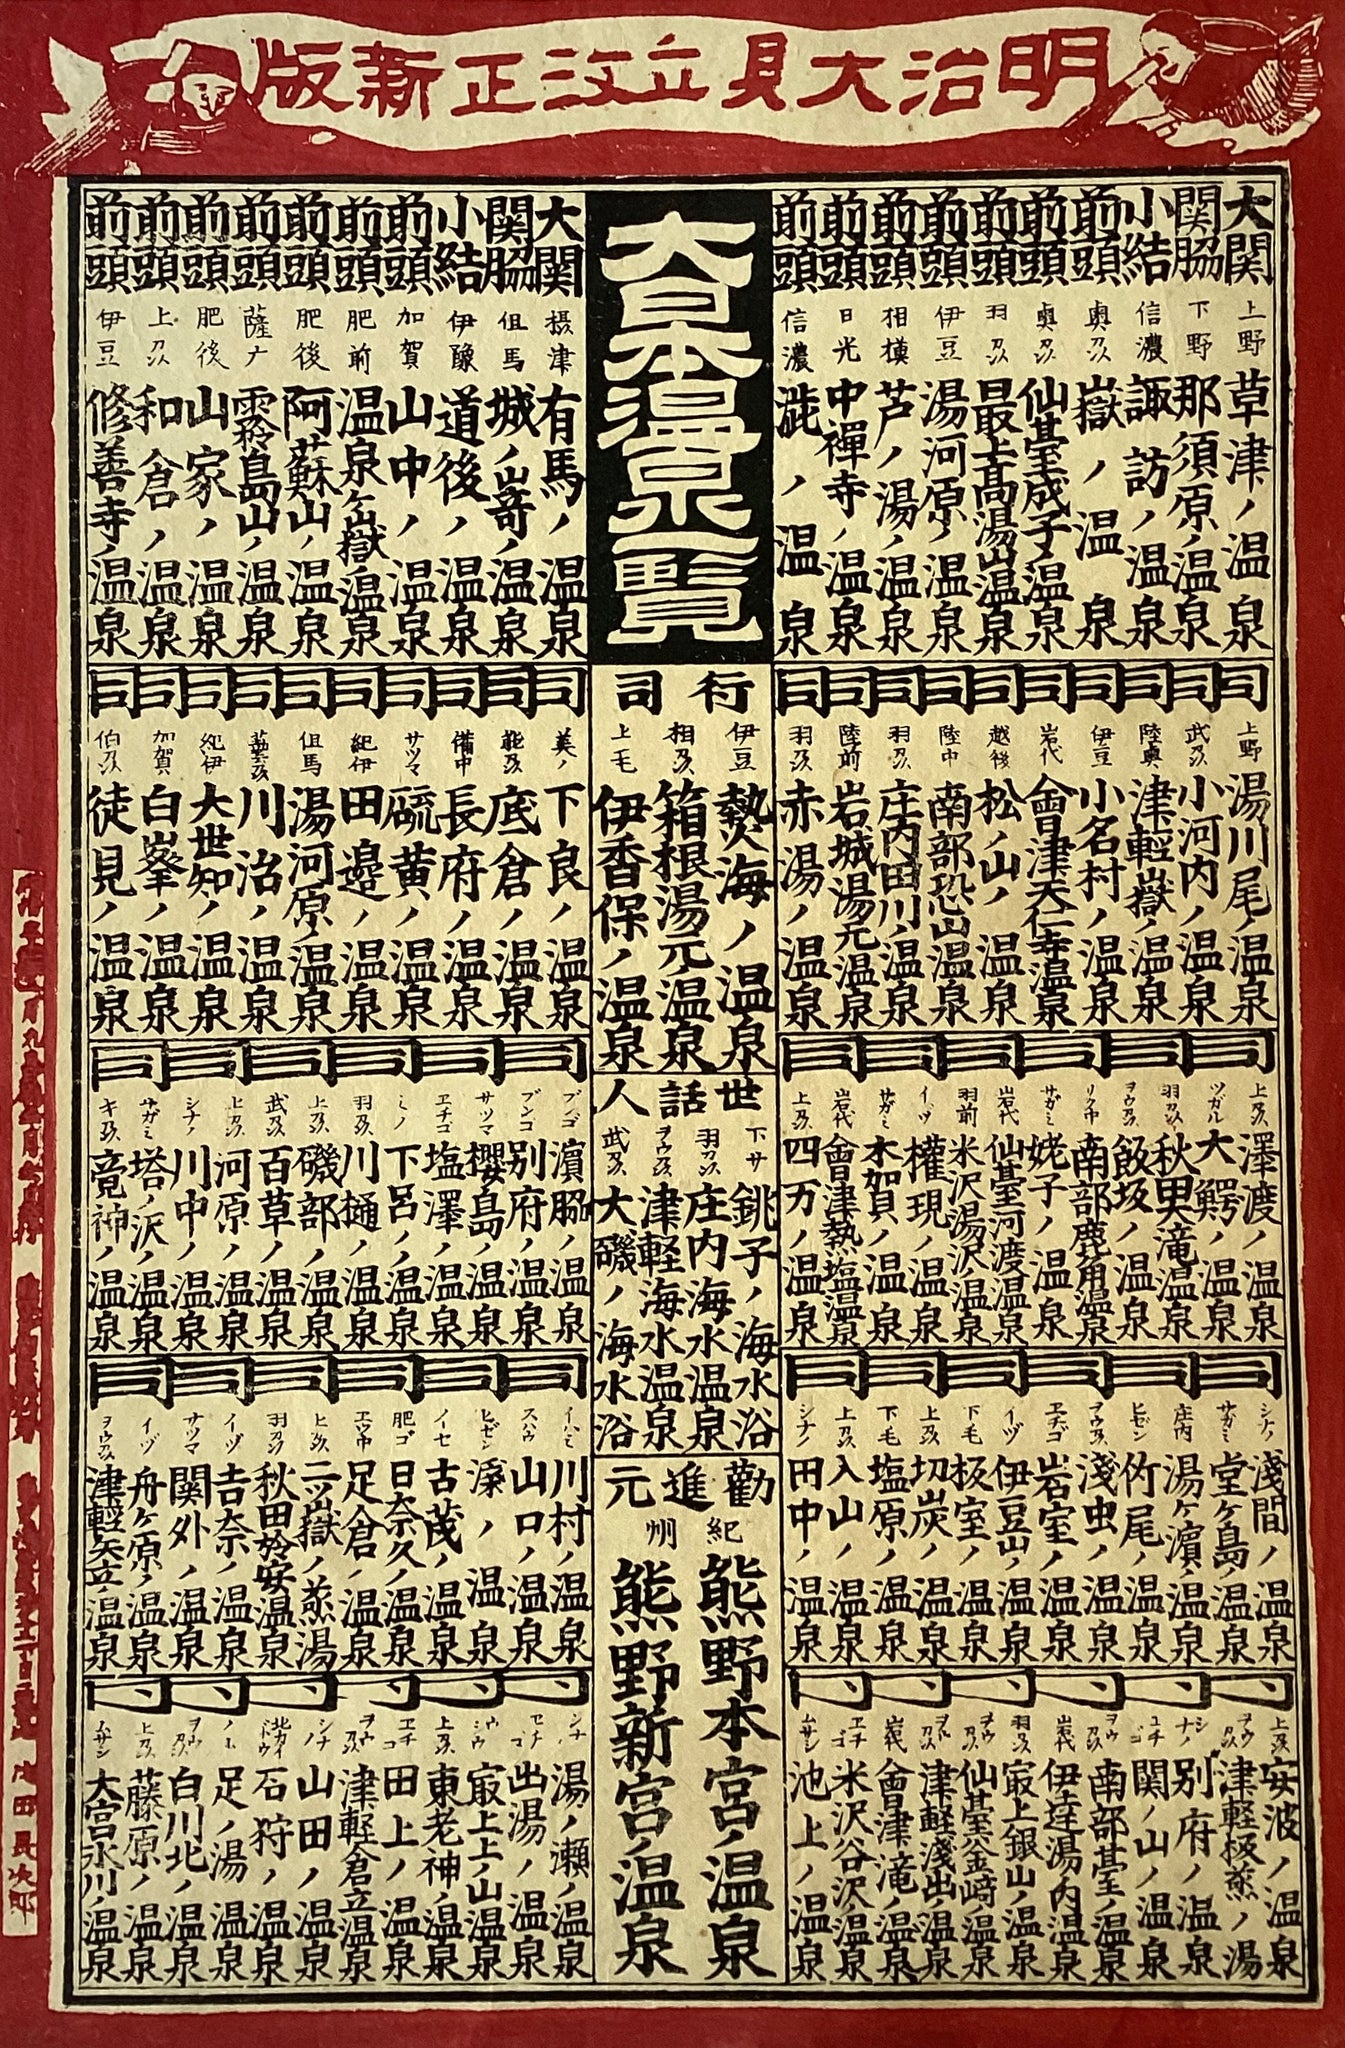 明治大見立改正新版
大日本温泉一覧
大関 上野 草津ノ温泉
関脇 下野 那須原ノ温泉
小結 信濃 諏訪ノ温泉
前頭 奥刕 嶽ノ温泉
前頭 奥刕 仙䑓成子ノ温泉
前頭 羽刕 最上高湯山温泉
前頭 伊豆 湯河原ノ温泉
前頭 相模 芦ノ湯ノ温泉
前頭 日光 中禅寺ノ温泉
前頭 信濃 渋ノ温泉
大関 摂津 有馬ノ温泉
関脇 但馬 城ノ崎ノ温泉
小結 伊豫 道後ノ温泉
前頭 加賀 山中ノ温泉
前頭 肥前 温泉ケ嶽温泉
前頭 肥後 阿蘇山ノ温泉
前頭 薩广 霧島山ノ温泉
前頭 肥後 山家ノ温泉
前頭 上刕 和倉ノ温泉
前頭 伊豆 修善寺ノ温泉
行司
伊豆 熱海ノ温泉
相刕 箱根湯元ノ温泉
上毛 伊香保ノ温泉
同 上野 湯川尾ノ温泉
同 武刕 小河内ノ温泉
同 陸奥 津輕嶽ノ温泉
同 伊豆 小名村ノ温泉
同 岩代 會津天仁寺温泉
同 越後 松ノ山ノ温泉
同 陸中 南部恐山温泉
同 羽刕 庄内田川ノ温泉
同 陸前 岩城湯元温泉
同 羽刕 赤湯ノ温泉
同 美ノ 下良ノ温泉
同 能刕 底倉ノ温泉
同 備中 長府ノ温泉
同 サツマ 硫黄ノ温泉
同 紀伊 田邉ノ温泉
同 但馬 湯河原ノ温泉
同 藝刕 川治ノ温泉
同 紀伊 大世知ノ温泉
同 加賀 白峯ノ温泉
同 伯刕 徒見ノ温泉
世話人
下サ 銚子ノ海水浴
羽刕 庄内海水温泉
ヲウ刕 津軽海水温泉
武刕 大磯ノ海水浴
同
上刕 澤渡ノ温泉
ツガル 大鰐ノ温泉
羽刕 秋田滝温泉
ヲウ刕 飯坂ノ温泉
リク中 南部鹿角温泉
サガミ 姥子ノ温泉
岩代 仙䑓河渡温泉
羽前 米沢湯沢温泉
イヅ 権現ノ温泉
サガミ 木加賀ノ温泉
岩代 會津熱塩温泉
上刕 四万ノ温泉
同
ブンゴ 濵脇ノ温泉
ブンゴ 別府ノ温泉
サツマ 櫻島ノ温泉
エチゴ 塩澤ノ温泉
ミノ 下呂ノ温泉
羽刕 川樋ノ温泉
上刕 磯部ノ温泉
武刕 百草ノ温泉
上刕 河原ノ温泉
シナノ 川中ノ温泉
サガミ 塔ノ沢ノ温泉
キ刕 竟神ノ温泉
勧進元
紀州
熊野本宮ノ温泉
熊野新宮ノ温泉
同
シナノ 淺間ノ温泉
サガミ 堂ケ島ノ温泉
庄内 湯ケ濵ノ温泉
ヒゼン 竹尾ノ温泉
ヲウ刕 淺虫ノ温泉
エチゴ 岩室ノ温泉
イヅ 伊豆山ノ温泉
下毛 板室ノ温泉
上刕 切炭ノ温泉
下毛 塩原ノ温泉
上刕 入山ノ温泉
シナノ 田中ノ温泉
同
イハミ 川村ノ温泉
スハウ 山口ノ温泉
ヒゼン ノ温泉
イセ 古茂ノ温泉
肥ゴ 日奈久ノ温泉
エツ中 足倉ノ温泉
上刕 二ツ嶽ノ蒸湯
羽刕 秋田於安温泉
イヅ 吉奈ノ温泉
サツマ 関外ノ温泉
イヅ 舟ケ原ノ温泉
ヲウ刕 津輕矢立ノ温泉
上刕 安波ノ温泉
ヲウ刕 津軽板蒸ノ湯
シナノ 別府ノ温泉
エチゴ 関ノ山ノ温泉
ヲウ刕 南部䑓ノ温泉
岩代 伊達湯内温泉
羽刕 寂上銀山ノ温泉
ヲウ刕 仙䑓釜﨑ノ温泉
ヲウ刕 津軽淺出ノ温泉
岩代 會津滝ノ温泉
エチゴ 米沢谷沢ノ温泉
ムサシ 池上ノ温泉
シナノ 湯ノ瀬ノ温泉
エチゴ 出湯ノ温泉
ウシウ 寂上上ノ山温泉
上刕 東老神ノ温泉
エチゴ 田上ノ温泉
ヲウ刕 津軽倉立温泉
シナノ 山田ノ温泉
北カイドウ 石狩ノ温泉
足ノ湯温泉
ヲウ刕 白川北ノ温泉
上刕 藤原ノ温泉
ムサシ 大宮氷川ノ温泉